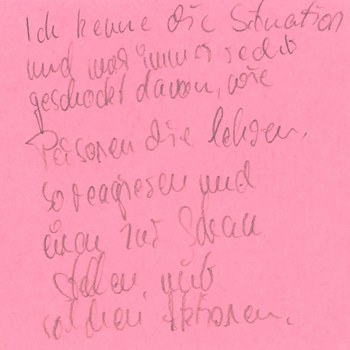 Ich kenne die Situation
und war immer recht
geschockt davon, wie
Personen die lehren,
so reagieren und
einen zur Schau
stellen mit
solchen Aktionen.